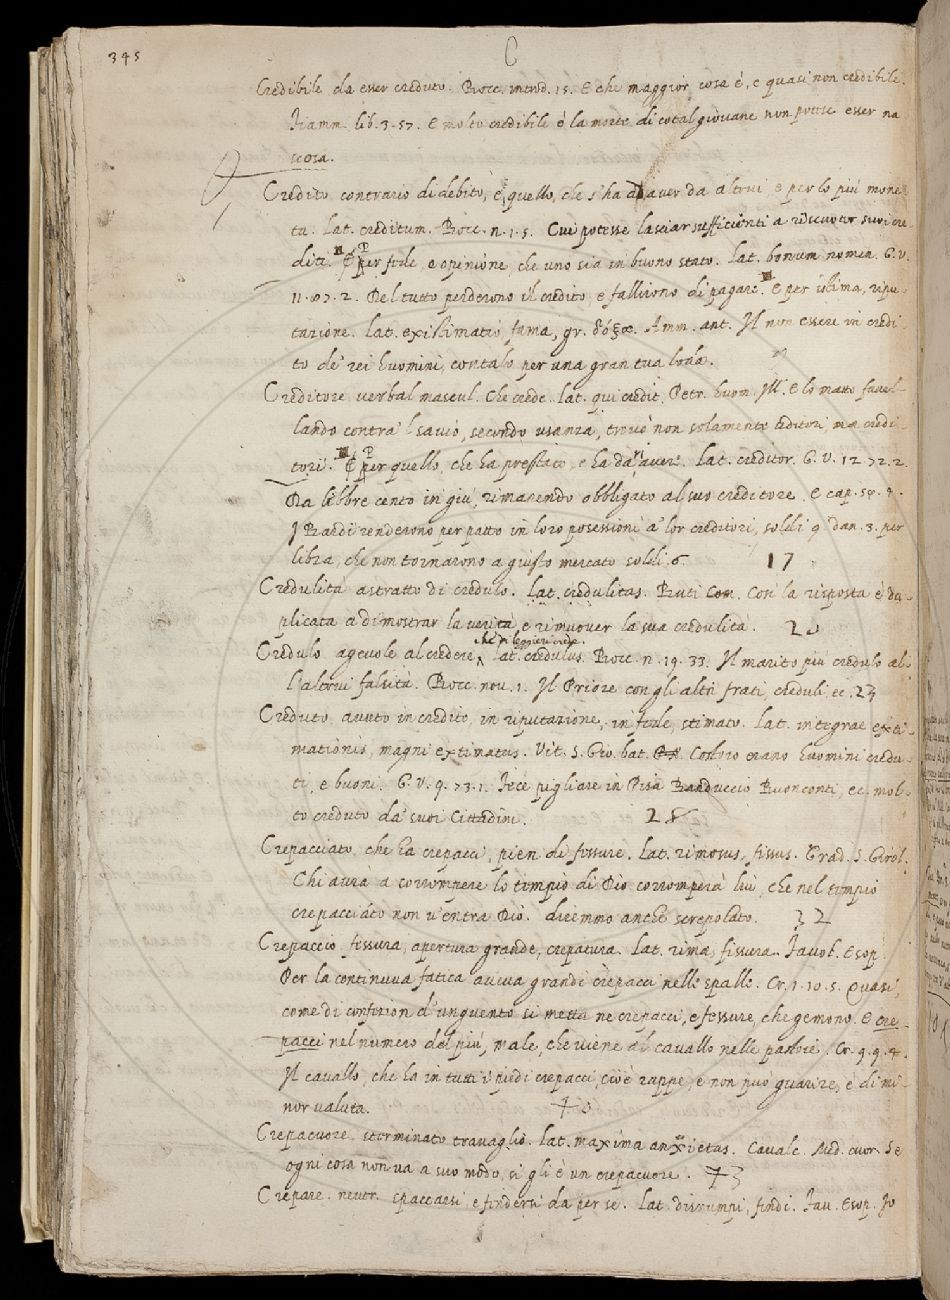 345
C
Credibile da esser creduto. Bocc. introd. 15. E che maggior cosa è, e quasi non credibile.
Fiamm. lib. 3. 57. E molto credibile è la morte di cotal giovane non potere esser na
scosa.
Credito contrario di debito, è quello, che s'ha ad aver da altrui e per lo più mone
ta. Lat. creditum. Bocc. n. 1. 5. Cui potesse lasciar sufficienti a riscuoter suoi cre
diti. E per fede, e opinione, che uno sia in buono stato. Lat. bonum nomen. G. V.
11. 87. 2. Del tutto perderono il credito, e fallirono di pagare. E per istima, ripu-
tazione. Lat. existimatio, fama, gr. δόξα. Amm. ant. Il non essere in credi-
to de' rei huomini, contalo per una gran tua loda.
Creditore verbal mascul. Che crede. Lat. qui credit. Petr. huom. Ill. E lo matto favel-
lando contra 'l savio, secondo usanza, trovò non solamente uditori, ma credi-
tori. E per quello, che ha prestato, e ha da avere. Lat. creditor. G. V. 12. 72. 2.
Da libbre cento in giù, rimanendo obbligato al suo creditore. E cap. 54. 4.
I Bardi renderono per patto in loro posessioni a' lor creditori, soldi 9 dan. 3. per
libra, che non tornarono a giusto mercato soldi 6. 17
Credulità astratto di credulo. Lat. credulitas. Buti Com. Così la risposta è du
plicata a dimostrar la verità, e rimuover la sua credulità. 20
che di leggieri crede.
Credulo agevole al credere, Lat. credulus. Bocc. n. 19. 33. Il marito più credulo al-
l'altrui falsità. Bocc. nov. 1. Il Priore con gli altri frati creduli, ec. 24
Creduto avuto in credito, in riputazione, in fede, stimato. Lat. integrae existi-
mationis, magni extimatus. Vit. S. Gio. bat. Costoro erano huomini credu-
ti, e buoni. G. V. 9. 73. 1. Fece pigliare in Pisa Banduccio Buonconti, ec. mol-
to creduto da' suoi Cittadini. 28
Crepacciato, che ha crepacci, pien di fessure. Lat. rimosus, fissus. Grad. S. Girol.
Chi avra a corrompere lo tempio di Dio corromperà lui, che nel tempio
crepacciato non v'entra Dio. diremmo anche screpolato. 32
Crepaccio fessura, apertura grande, crepatura. Lat. rima, fissura. Favol. Esop.
Per la continuva fatica aveva grandi crepacci nelle spalle. Cr. 1. 10. 5. Quasi
come di confezion d'unguento si metta ne crepacci, e fessure, che gemono. E cre-
pacci nel numero del più, male, che viene al cavallo nelle pastoie. Cr. 9. 9. 4.
Il cavallo, che ha in tutti i piedi crepacci, cioè rappe, e non può guarire, è di mi-
nor valuta. 40
Crepacuore sterminato travaglio. Lat. maxima anxietas. Cavalc. Med. cuor. Se
ogni cosa non va a suo modo, si gli è un crepacuore. 43
Crepare. neutr. spaccarsi e fendersi da per se. Lat. disrumpi, findi. Fav. Esop. Io